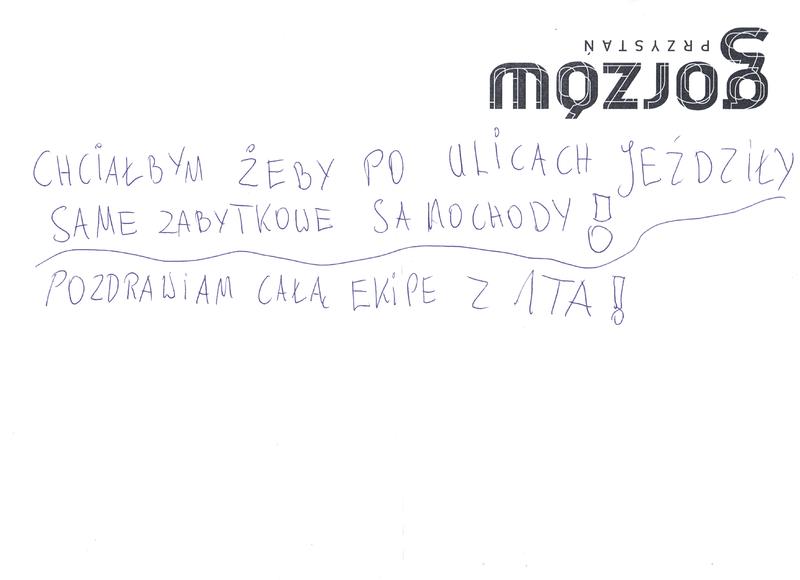 gorzów
PRZYSTAŃ
CHCIAŁBYM ŻEBY PO ULICACH JEŹDZIŁY
SAME ZABYTKOWE SAMOCHODY!
POZDRAWIAM CAŁĄ EKIPE Z 1TA!